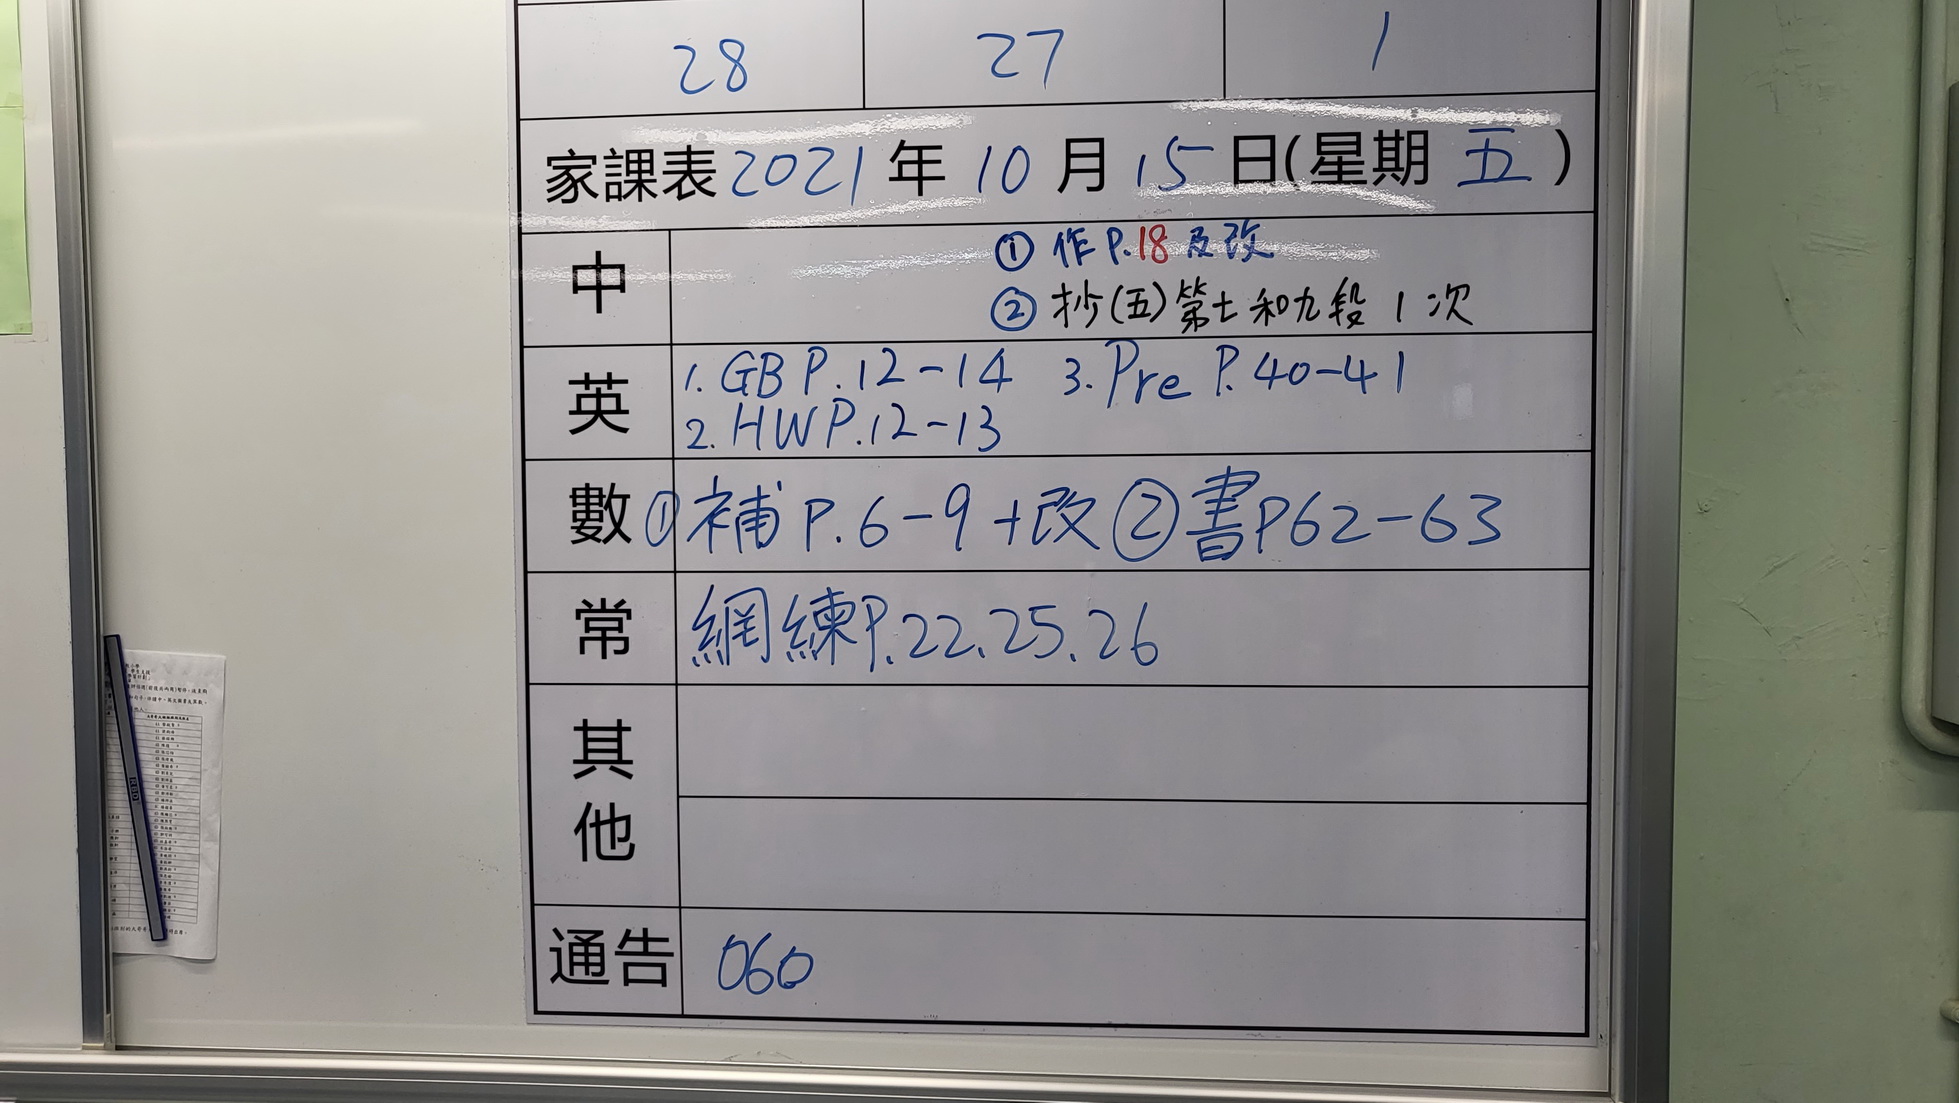 28 27 1
家課表 2021 年 10 月 15 日(星期 五 )
中 ① 作 P.18 及改
② 抄(五)第七和九段 1 次
英 1. GB P.12-14 3. Pre P.40-41
2. HW P.12-13
數 ① 補 P.6-9 +改 ② 書P62-63
常 網練P.22.25.26
其他
通告 060